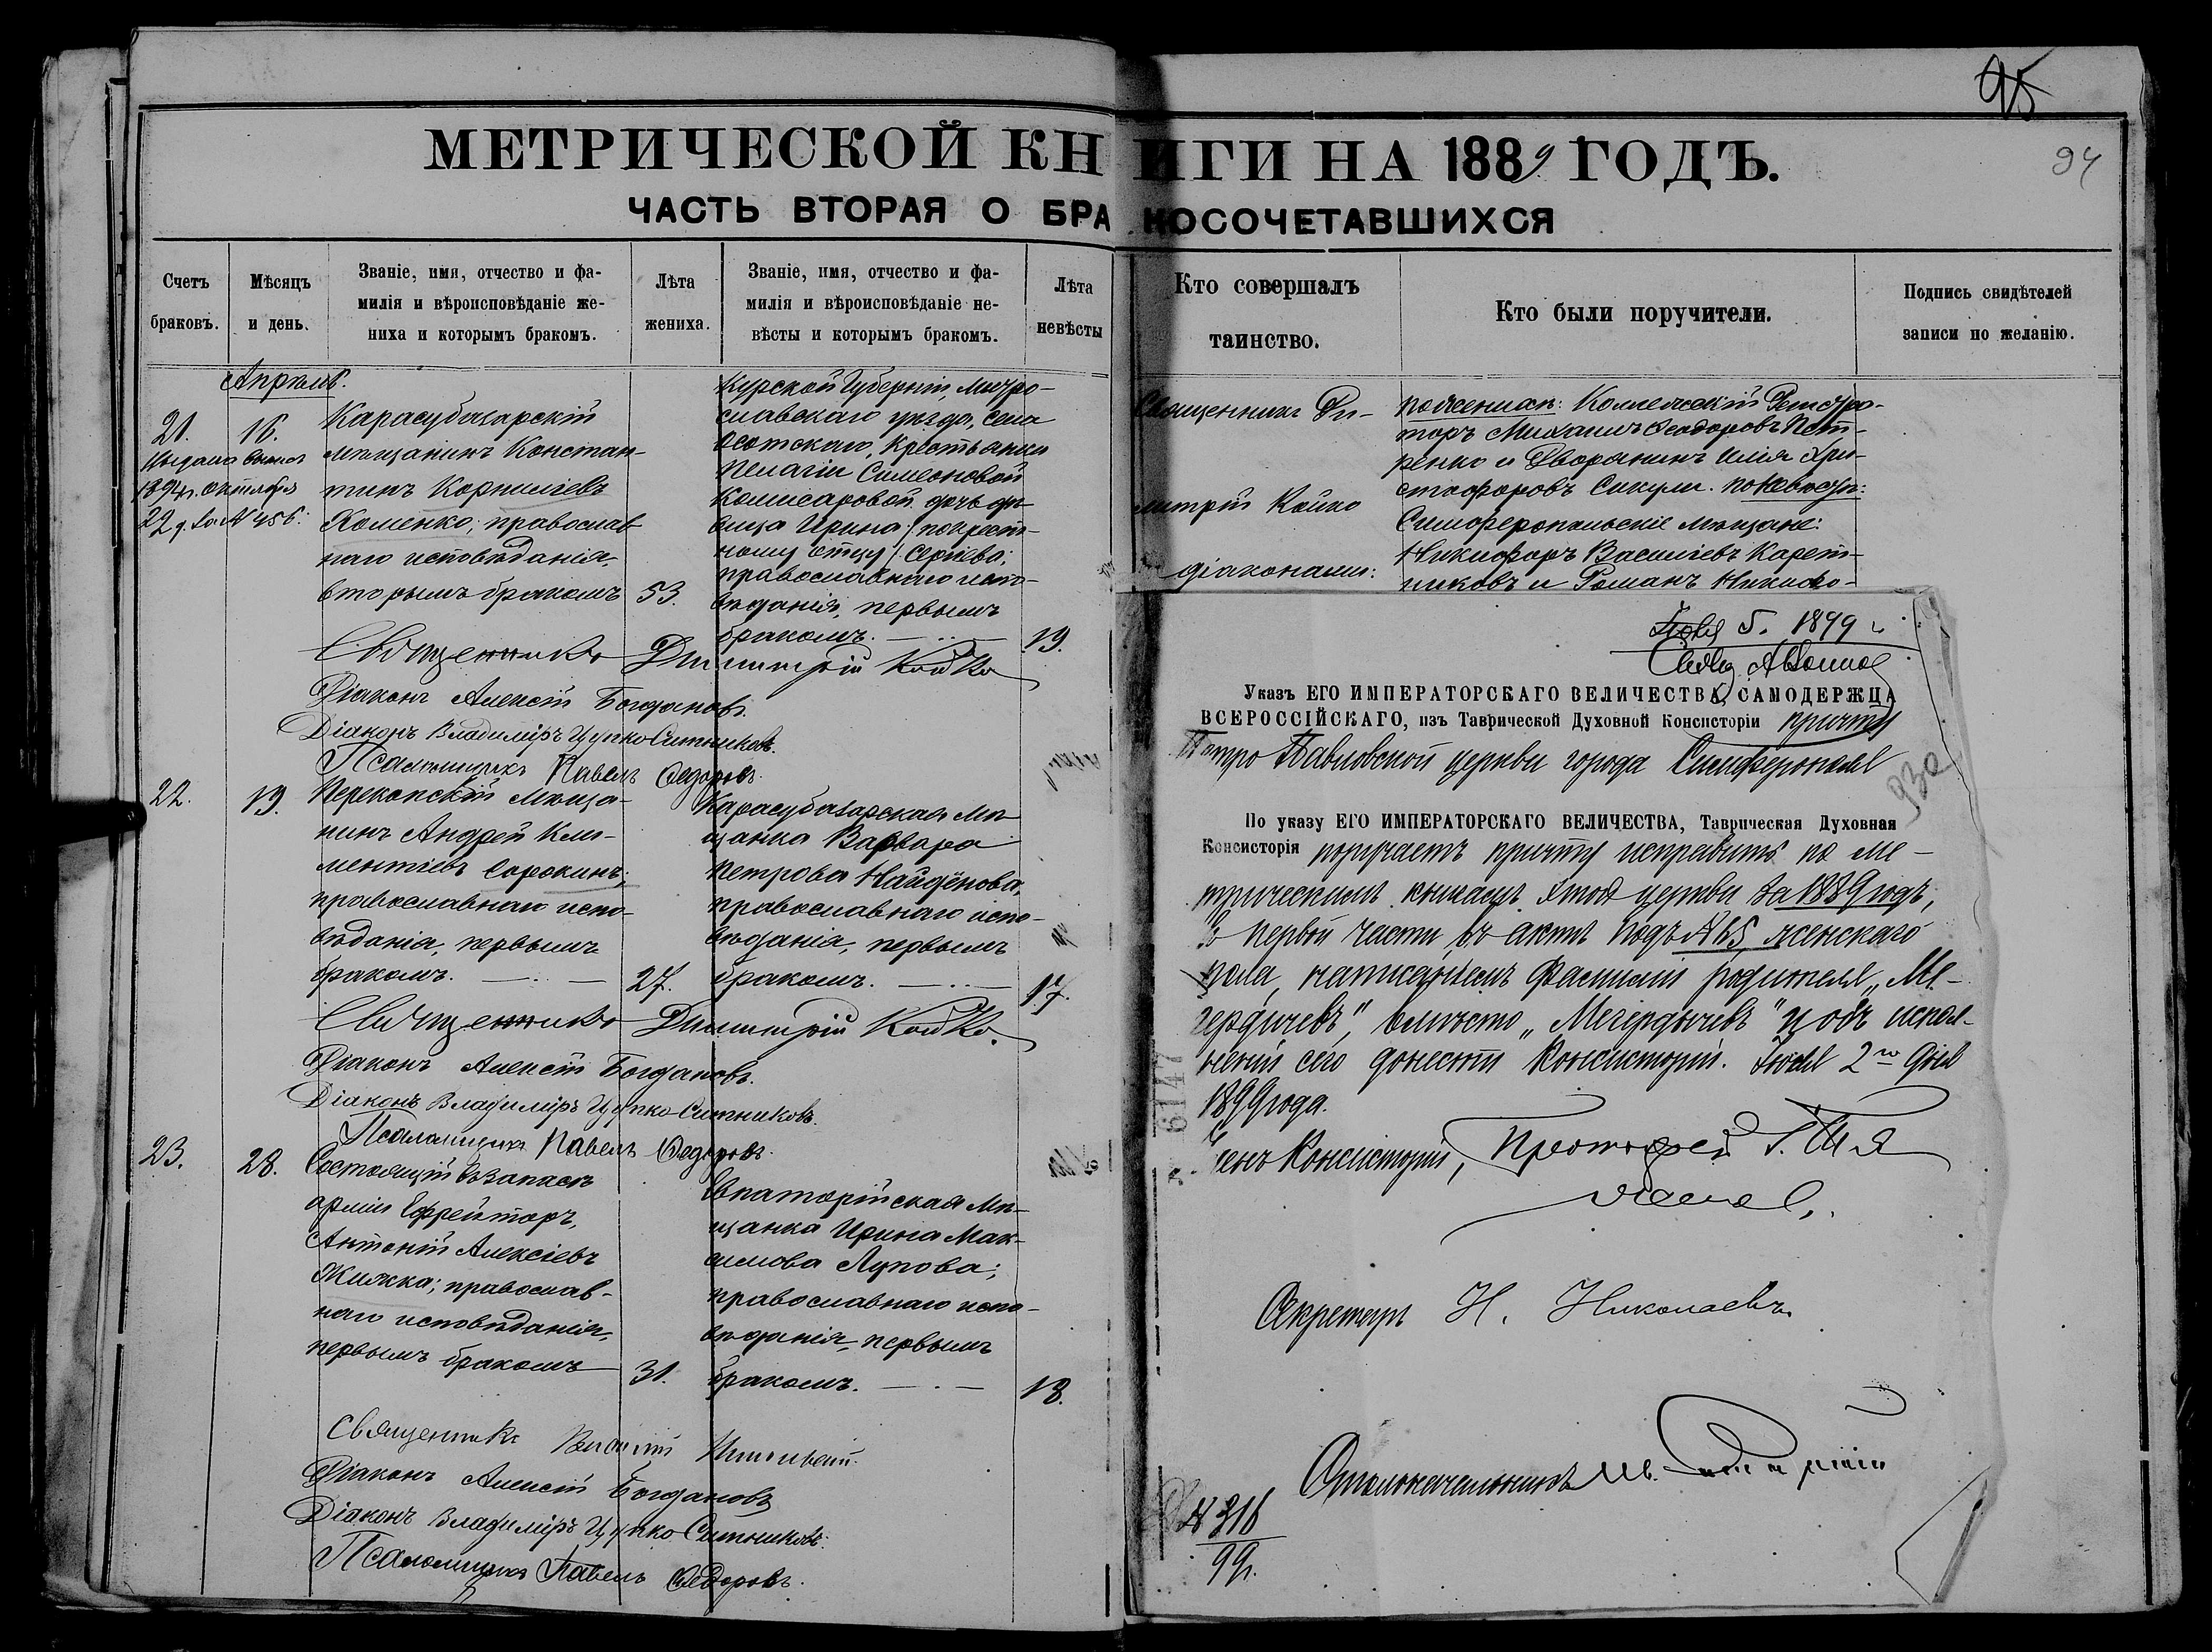 95
94
МЕТРИЧЕСКОЙ КНИГИ НА 1889 ГОДЪ.
ЧАСТЬ ВТОРАЯ О БРАКОСОЧЕТАВШИХСЯ
Счетъ браковъ.
Мѣсяцъ и день.
Званіе, имя, отчество и фа-
милія и вѣроисповѣданіе же-
ниха и которымъ бракомъ.
Лѣта жениха.
Званіе, имя, отчество и фа-
милія и вѣроисповѣданіе не-
вѣсты и которымъ бракомъ.
Лѣта невѣсты
Кто совершалъ таинство.
Кто были поручители.
Подпись свидѣтелей
записи по желанію.
Апрѣль.
21. 16.
1894 г. октября
22 д. за № 456.
Карасубазарскій
мѣщанинъ Констан-
тинъ Корниліевъ
Хоменко; православ
наго исповѣданія,
вторымъ бракомъ 53.
Курской Губерніи,
славскаго уѣзда, села
крестьянки
Пелагіи Симеоновой
Комисаровой дочь дѣ-
вица Ирина /по крест-
ному отцу/ Сергіева;
православнаго испо-
вѣданія, первымъ
бракомъ. 19.
Священникъ Ди-
митрій Койко
діаконами:
По женихѣ: Коллежскій Регистра-
торъ Михаилъ Ѳеодоровъ Пет-
ренко и Дворянинъ Илія Хри-
стофоровъ Сикули. по невѣстѣ:
Симферопольскіе мѣщане:
Никифоръ Василіевъ Карет-
никовъ и Романъ Никифо-
Священникъ Димитрій Койко
Діаконъ Алексій Богдановъ.
Діаконъ Владиміръ Цупко-Ситниковъ.
Псаломщикъ Павелъ Ѳедоровъ.
22. 19.
Перекопскій мѣща-
нинъ Андрей Кли-
ментіевъ Сорокинъ;
православнаго испо-
вѣданія, первымъ
бракомъ. 27.
Карасубазарская мѣ-
щанка Варвара
Петрова Найдёнова,
православнаго испо-
вѣданія, первымъ
бракомъ. 17.
Священникъ Димитрій Койко.
Діаконъ Алексій Богдановъ.
Діаконъ Владиміръ Цупко-Ситниковъ.
Псаломщикъ Павелъ Ѳедоровъ.
23. 28.
Состоящій въ запасѣ
арміи Ефрейторъ,
Антоній Алексіевъ
Жижка; православ-
наго исповѣданія,
первымъ бракомъ 31.
Евпаторійская мѣ-
щанка Ирина Мак-
симова Лупова;
православнаго испо-
вѣданія, первымъ
бракомъ. 18.
Священникъ
Діаконъ Алексій Богдановъ
Діаконъ Владиміръ Цупко-Ситниковъ.
Псаломщикъ Павелъ Ѳедоровъ.
5. 1899 г.
Указъ ЕГО ИМПЕРАТОРСКАГО ВЕЛИЧЕСТВА, САМОДЕРЖЦА
ВСЕРОССІЙСКАГО, изъ Таврической Духовной Консисторіи причту
Петро-Павловской церкви города Симферополя
930
По указу ЕГО ИМПЕРАТОРСКАГО ВЕЛИЧЕСТВА, Таврическая Духовная
Консисторія поручаетъ причту исправить по ме-
трическимъ книгамъ этой церкви за 1889 годъ,
въ первой части въ актѣ подъ № 65, женскаго
пола, написаніемъ фамиліи родителя „Ме-
гердичевъ", вмѣсто „Мегердычевъ" и объ испол-
неніи сего донести Консисторіи. Іюля 2 го дня
1899 года.
Членъ Консисторіи, Протоіерей
Секретарь Н. Николаевъ
Столоначальникъ
6147
№ 316
99 г.